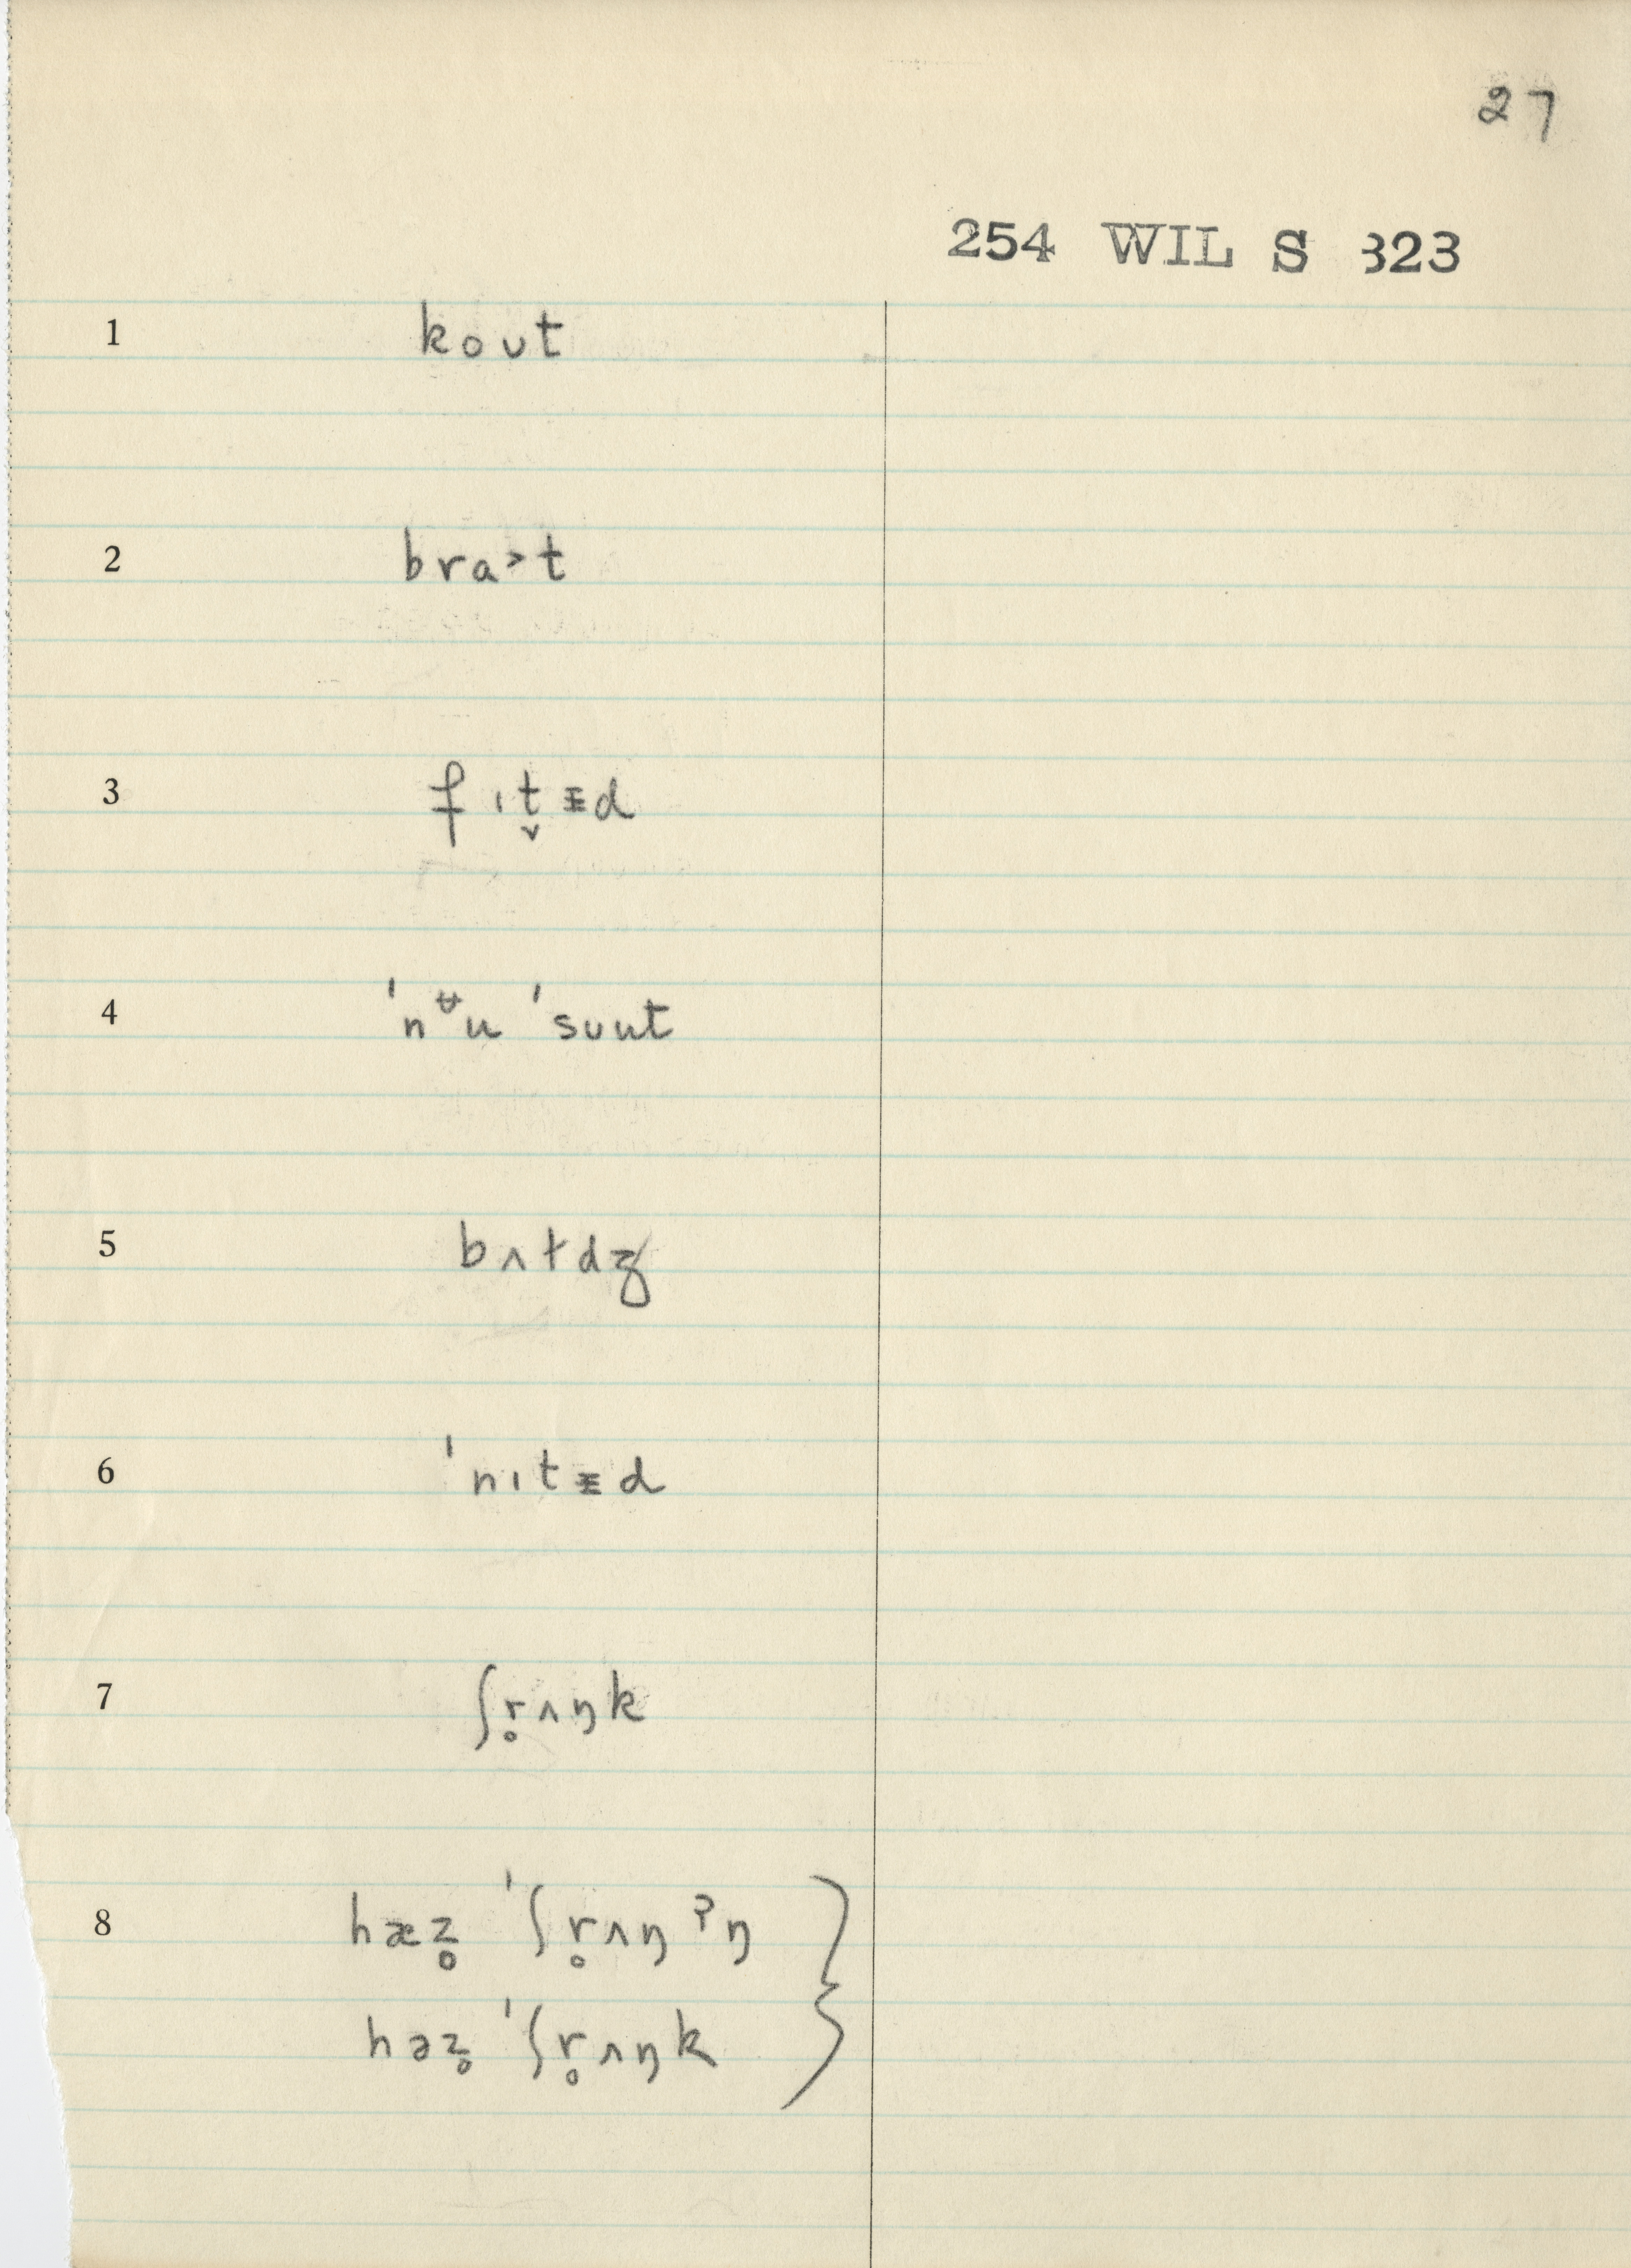 27
254 WIL S 323
1 koʊt
2 bra˃t
3 fɪt̬ᵻd
4 ˈnᶶu ˈsuut
5 bʌtdʒ
6 ˈnɪtᵻd
7 ʃr̥ʌŋk
8 hæz̥ ˈʃr̥ʌŋˀŋ
həz̥ ˈʃr̥ʌŋk